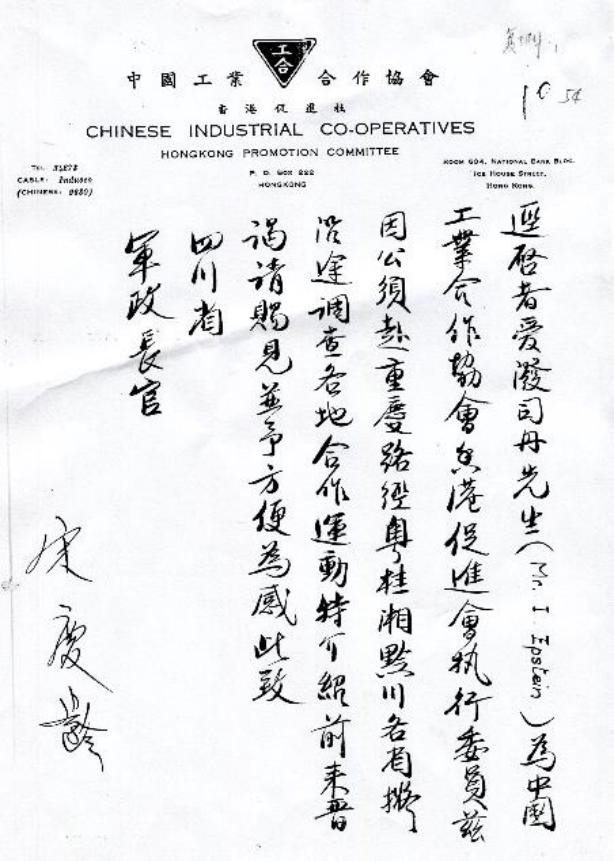 工合
中國工業合作協會
香港促進社
CHINESE INDUSTRIAL CO-OPERATIVES
HONGKONG PROMOTION COMMITTEE
P. O. BOX 222
HONGKONG
CABLE: Indusco
ROOM 604, NATIONAL BANK BLDG.
ICE HOUSE STREET,
HONG KONG.
逕啓者愛潑司丹先生(Mr. I. Epstein)為中國
工業合作協會香港促進會執行委員茲
因公須赴重慶路經粵桂湘黔川各省擬
沿途調查各地合作運動特介紹前來晉
謁請賜見並予方便為感此致
四川省
軍政長官
宋慶齡